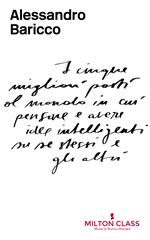 Alessandro
Baricco
I cinque
migliori posti
al mondo in cui
pensare e avere
idee intelligenti
su se stessi e
gli altri
MILTON CLASS